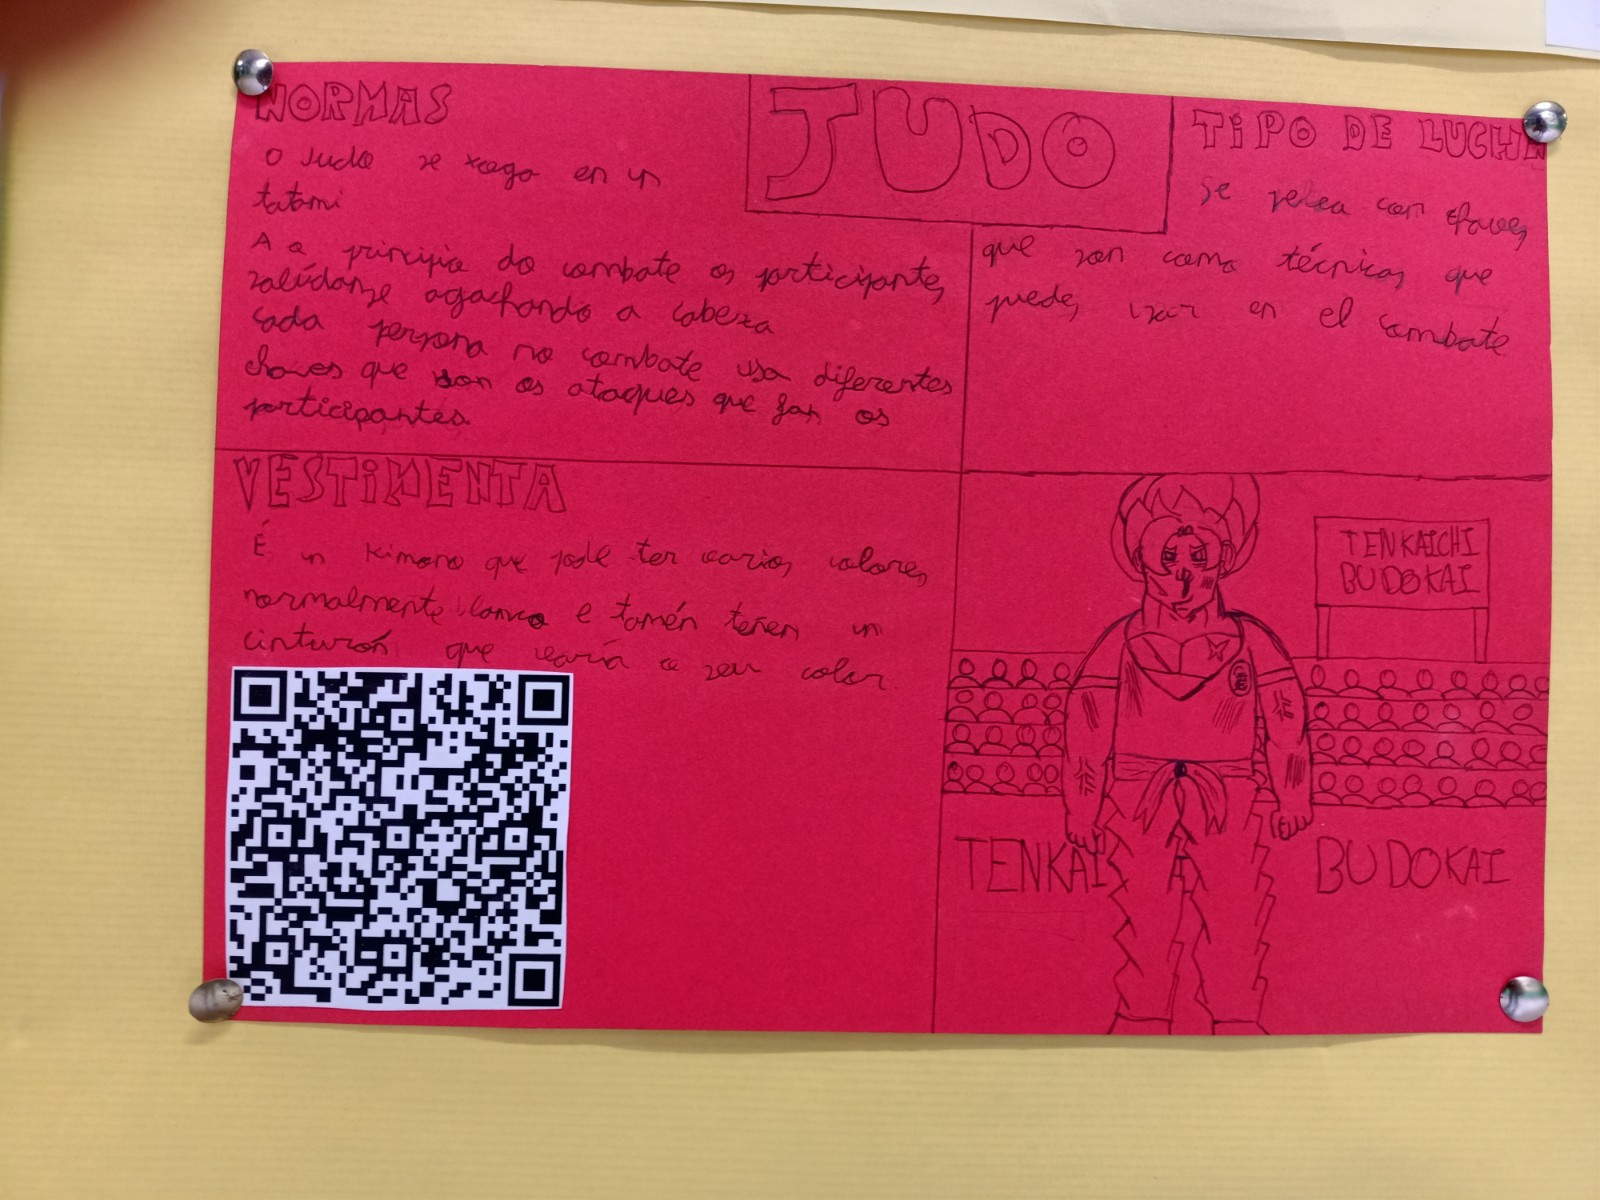 NORMAS
O Judo se xoga en un
tatami
A o principio do combate os participantes
salúdanse agachando a cabeza
cada persona no combate usa diferentes
chaves que son os ataques que fan os
participantes.
JUDO
TIPO DE LUCHA
Se pelea con chaves,
que son como técnicas que
puedes usar en el combate
VESTIMENTA
É un kimono que pode ter varios colores,
normalmente blanco e tamén teñen un
cinturón que varía o seu color.
TENKAICHI
BUDOKAI
TENKAI
BUDOKAI